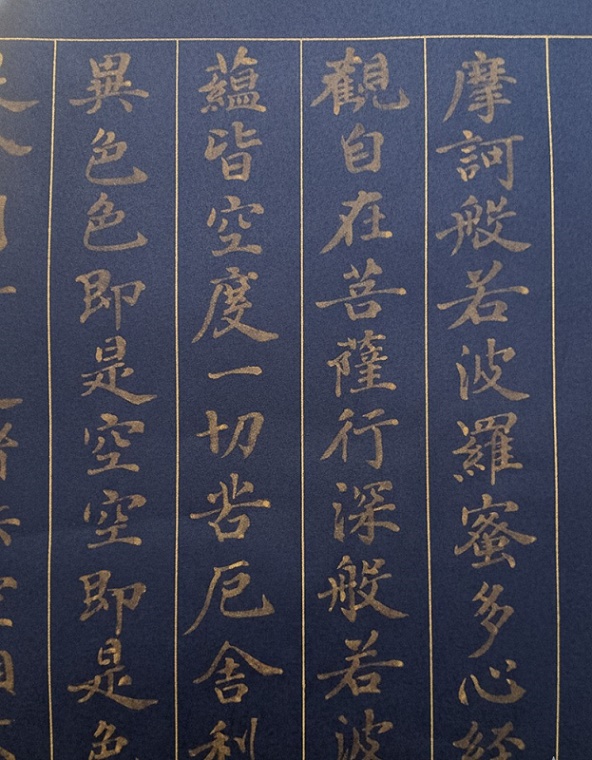 摩訶般若波羅蜜多心経
觀自在菩薩行深般若波
蘊皆空度一切苦厄舍利
異色色即是空空即是色